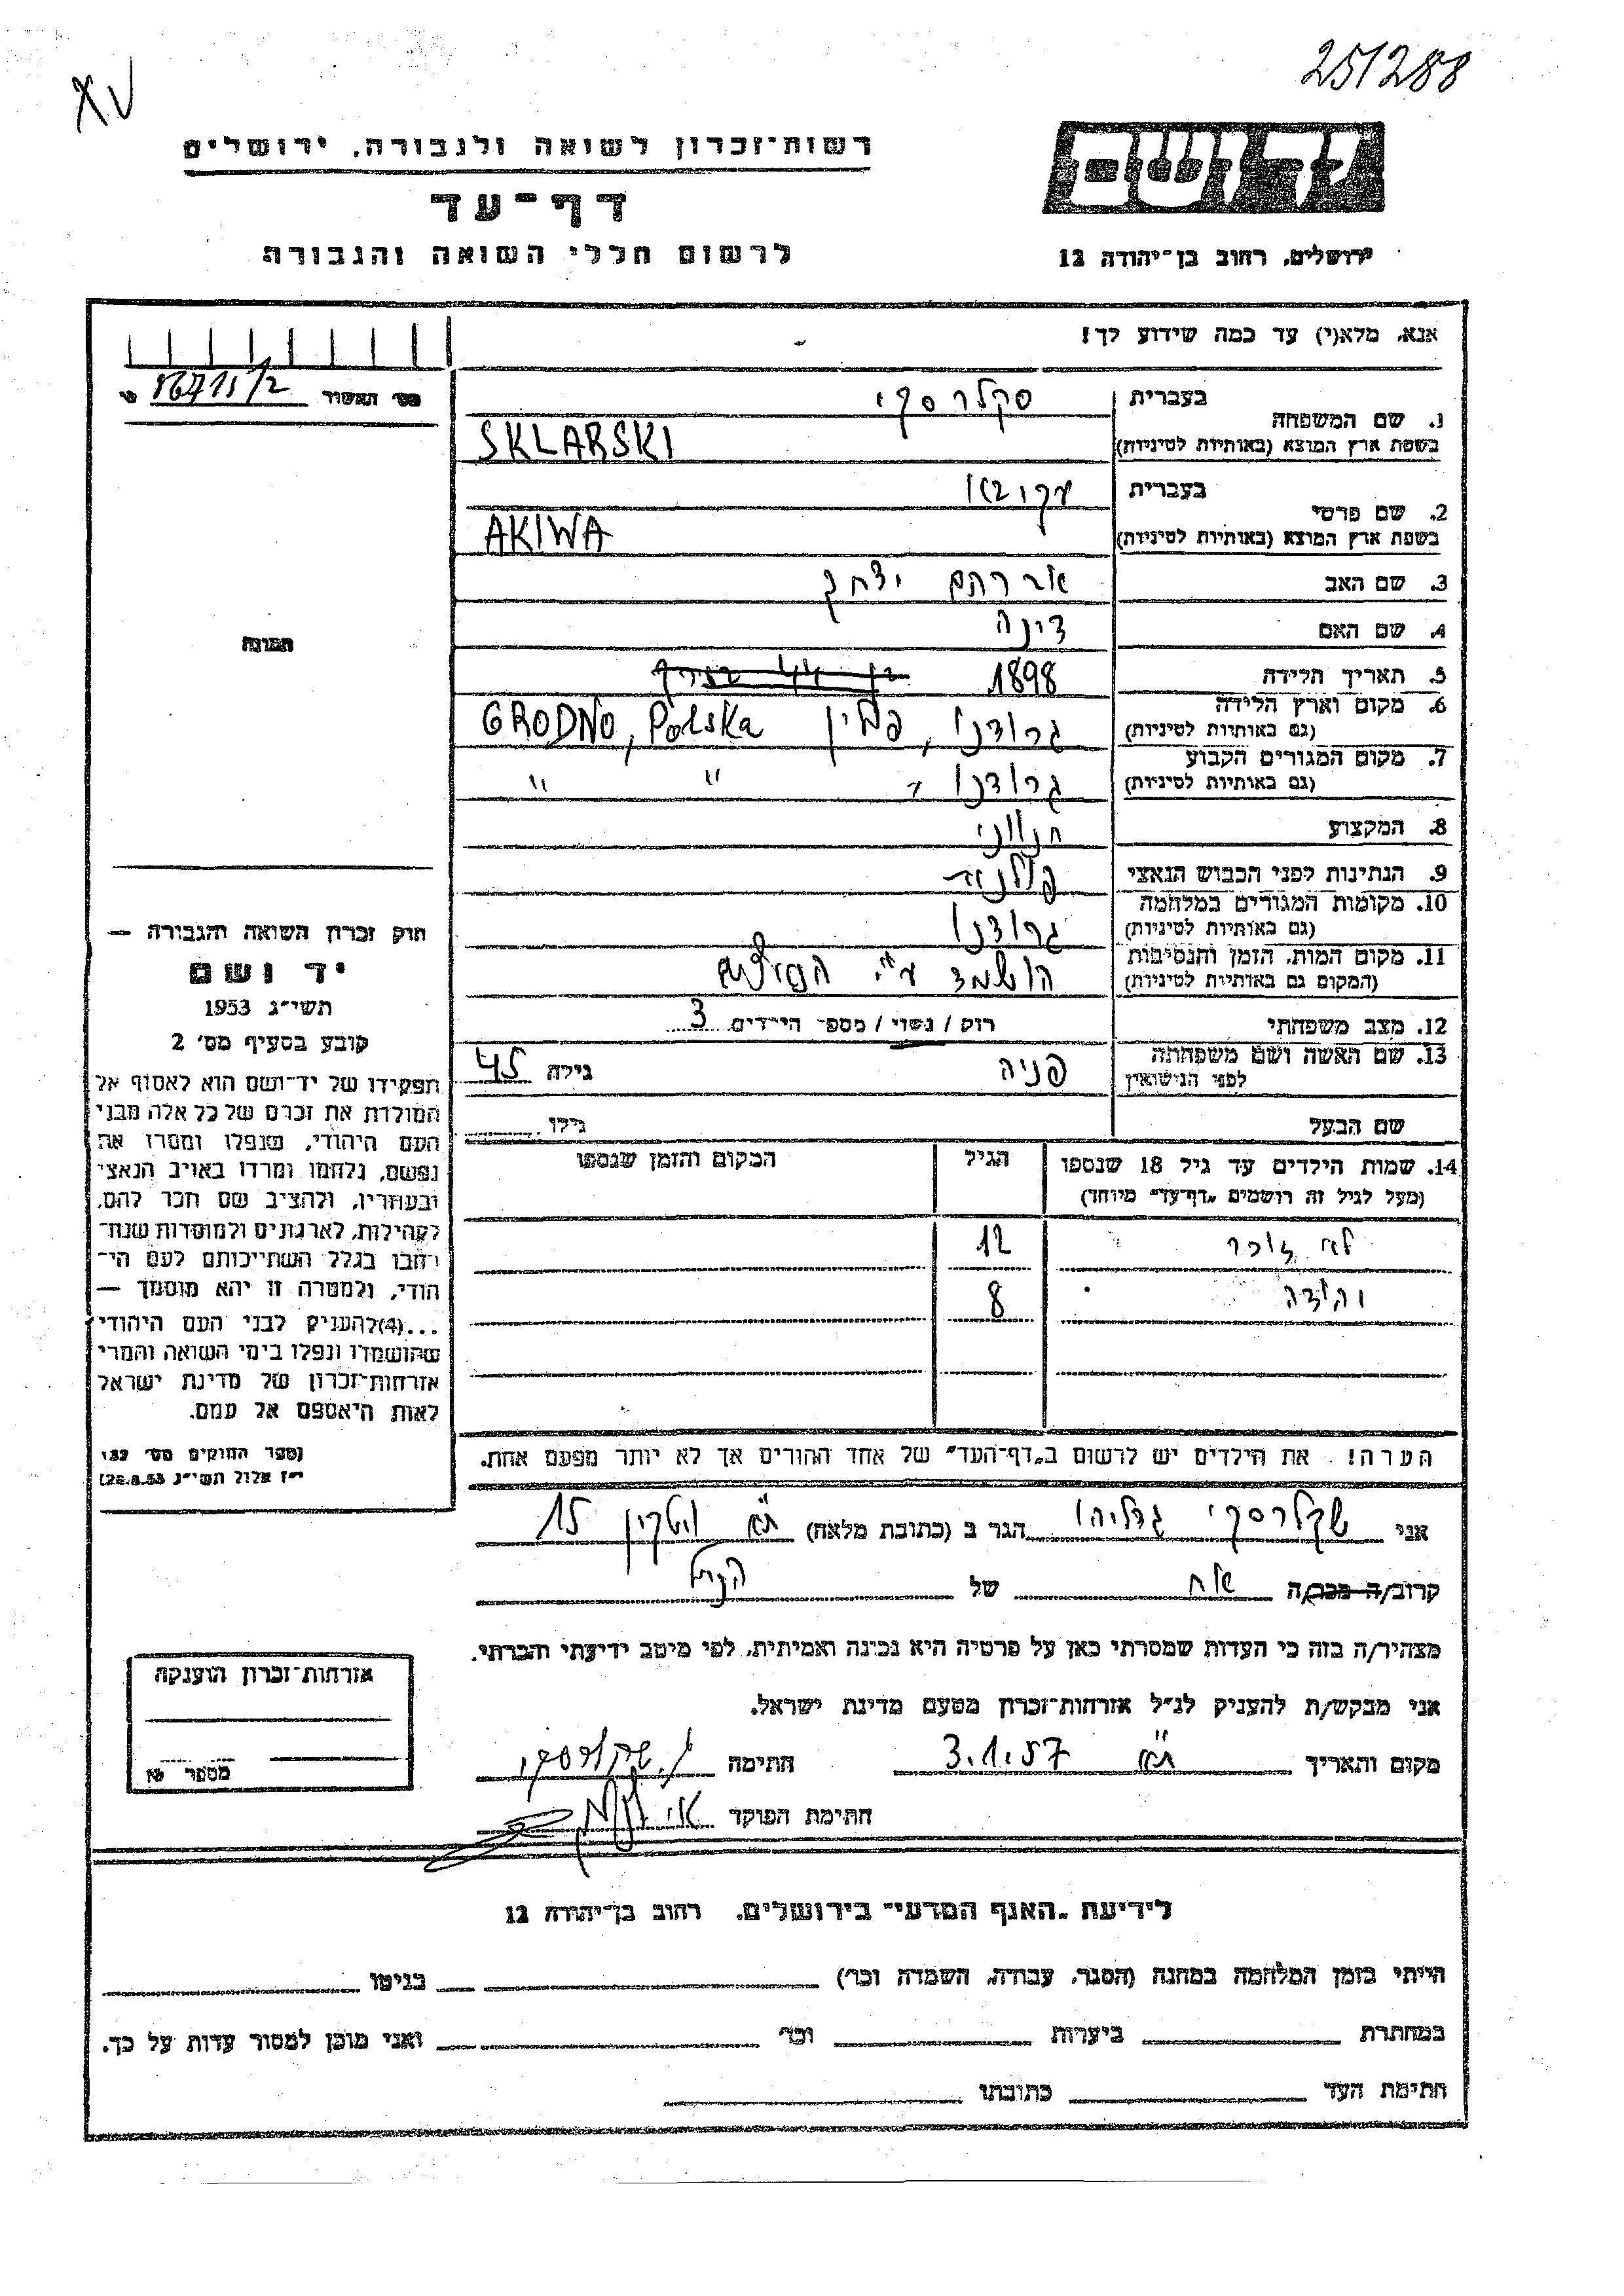 251288
רשות־זכרון לשואה ולגבורה, ירושלים
דף־עד
לרשום חללי השואה והגבורה
ירושלים, רחוב בן־יהודה 12
אנא, מלא(י) עד כמה שידוע לך!
בעברית סקלרסקי
1. שם המשפחה
בשפת ארץ המוצא (באותיות לטיניות) SKLARSKI
בעברית
2. שם פרטי
בשפת ארץ המוצא (באותיות לטיניות) AKIWA
3. שם האב אברהם יצחק
4. שם האם דינה
5. תאריך הלידה 1898
6. מקום וארץ הלידה
(גם באותיות לטיניות) גרודנו, פולין GRODNO, Polska
7. מקום המגורים הקבוע
(גם באותיות לטיניות) גרודנו " "
8. המקצוע חנווני
9. הנתינות לפני הכבוש הנאצי
10. מקומות המגורים במלחמה
(גם באותיות לטיניות) גרודנו
11. מקום המות, הזמן והנסיבות
(המקום גם באותיות לטיניות) הושמד ע"י
12. מצב משפחתי רווק / נשוי / מספר הילדים 3
13. שם האשה ושם משפחתה
לפני הנישואין פניה גילה 45
שם הבעל גילו
14. שמות הילדים עד גיל 18 שנספו הגיל המקום והזמן שנספו
(מעל לגיל זה רושמים „דף־עד" מיוחד)
לא זוכר 12
יהודה 8
הערה! את הילדים יש לרשום ב„דף־העד" של אחד ההורים אך לא יותר מפעם אחת.
תמונה
חוק זכרון השואה והגבורה —
יד ושם
תשי״ג 1953
קובע בסעיף מס' 2
תפקידו של יד־ושם הוא לאסוף אל
המולדת את זכרם של כל אלה מבני
העם היהודי, שנפלו ומסרו את
נפשם, נלחמו ומרדו באויב הנאצי
ובעוזריו, ולהציב שם וזכר להם,
לקהילות, לארגונים ולמוסדות שנח־
רבו בגלל השתייכותם לעם הי־
הודי, ולמטרה זו יהא מוסמך —
...(4)להעניק לבני העם היהודי
שהושמדו ונפלו בימי השואה והמרי
אזרחות־זכרון של מדינת ישראל
לאות היאספם אל עמם.
(ספר החוקים מס' 132,
י״ז אלול תשי״ג 28.8.53)
אני שקלרסקי גדליהו הגר ב (כתובת מלאה) ת"א 15
קרוב/ה מכר/ה אח של הנ"ל
מצהיר/ה בזה כי העדות שמסרתי כאן על פרטיה היא נכונה ואמיתית, לפי מיטב ידיעתי והכרתי.
אני מבקש/ת להעניק לנ״ל אזרחות־זכרון מטעם מדינת ישראל.
מקום והתאריך ת"א 3.1.57 חתימה ג. שקלרסקי
חתימת הפוקד
אזרחות־זכרון הוענקה
מספר
לידיעת „האגף המדעי" בירושלים, רחוב בן־יהודה 12
הייתי בזמן המלחמה במחנה (הסגר, עבודה, השמדה וכו') בגיטו
במחתרת ביערות וכו' ואני מוכן למסור עדות על כך.
חתימת העד כתובתו